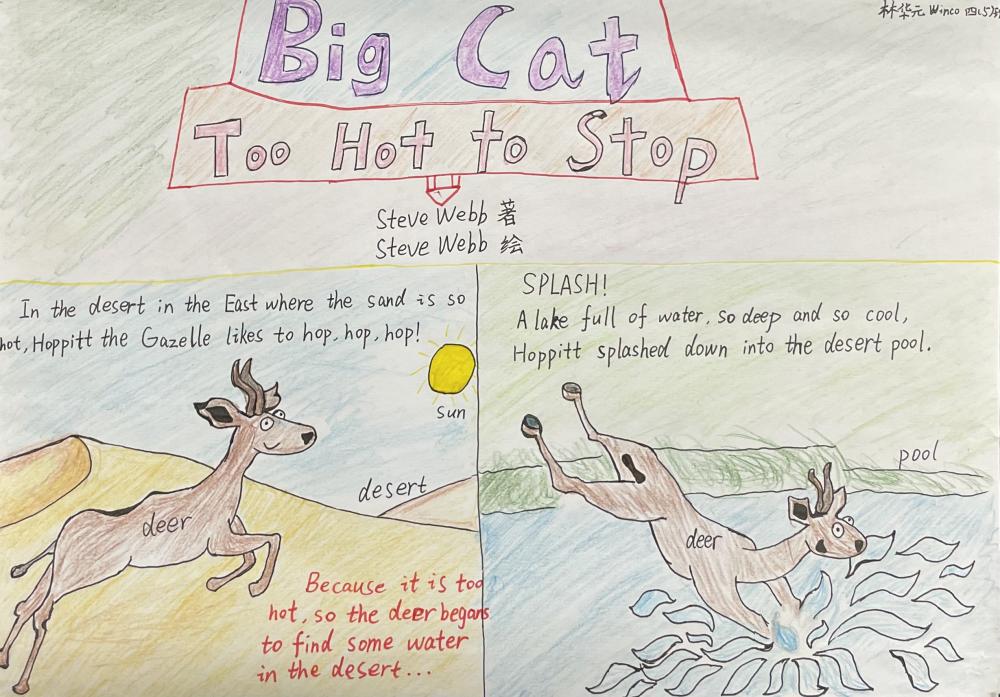 林华元 Winco 四(5)
Big Cat
Too Hot to Stop
Steve Webb 著
Steve Webb 绘
In the desert in the East where the sand is so
hot, Hoppitt the Gazelle likes to hop, hop, hop!
sun
desert
deer
Because it is too
hot, so the deer begans
to find some water
in the desert...
SPLASH!
A lake full of water, so deep and so cool,
Hoppitt splashed down into the desert pool.
pool
deer